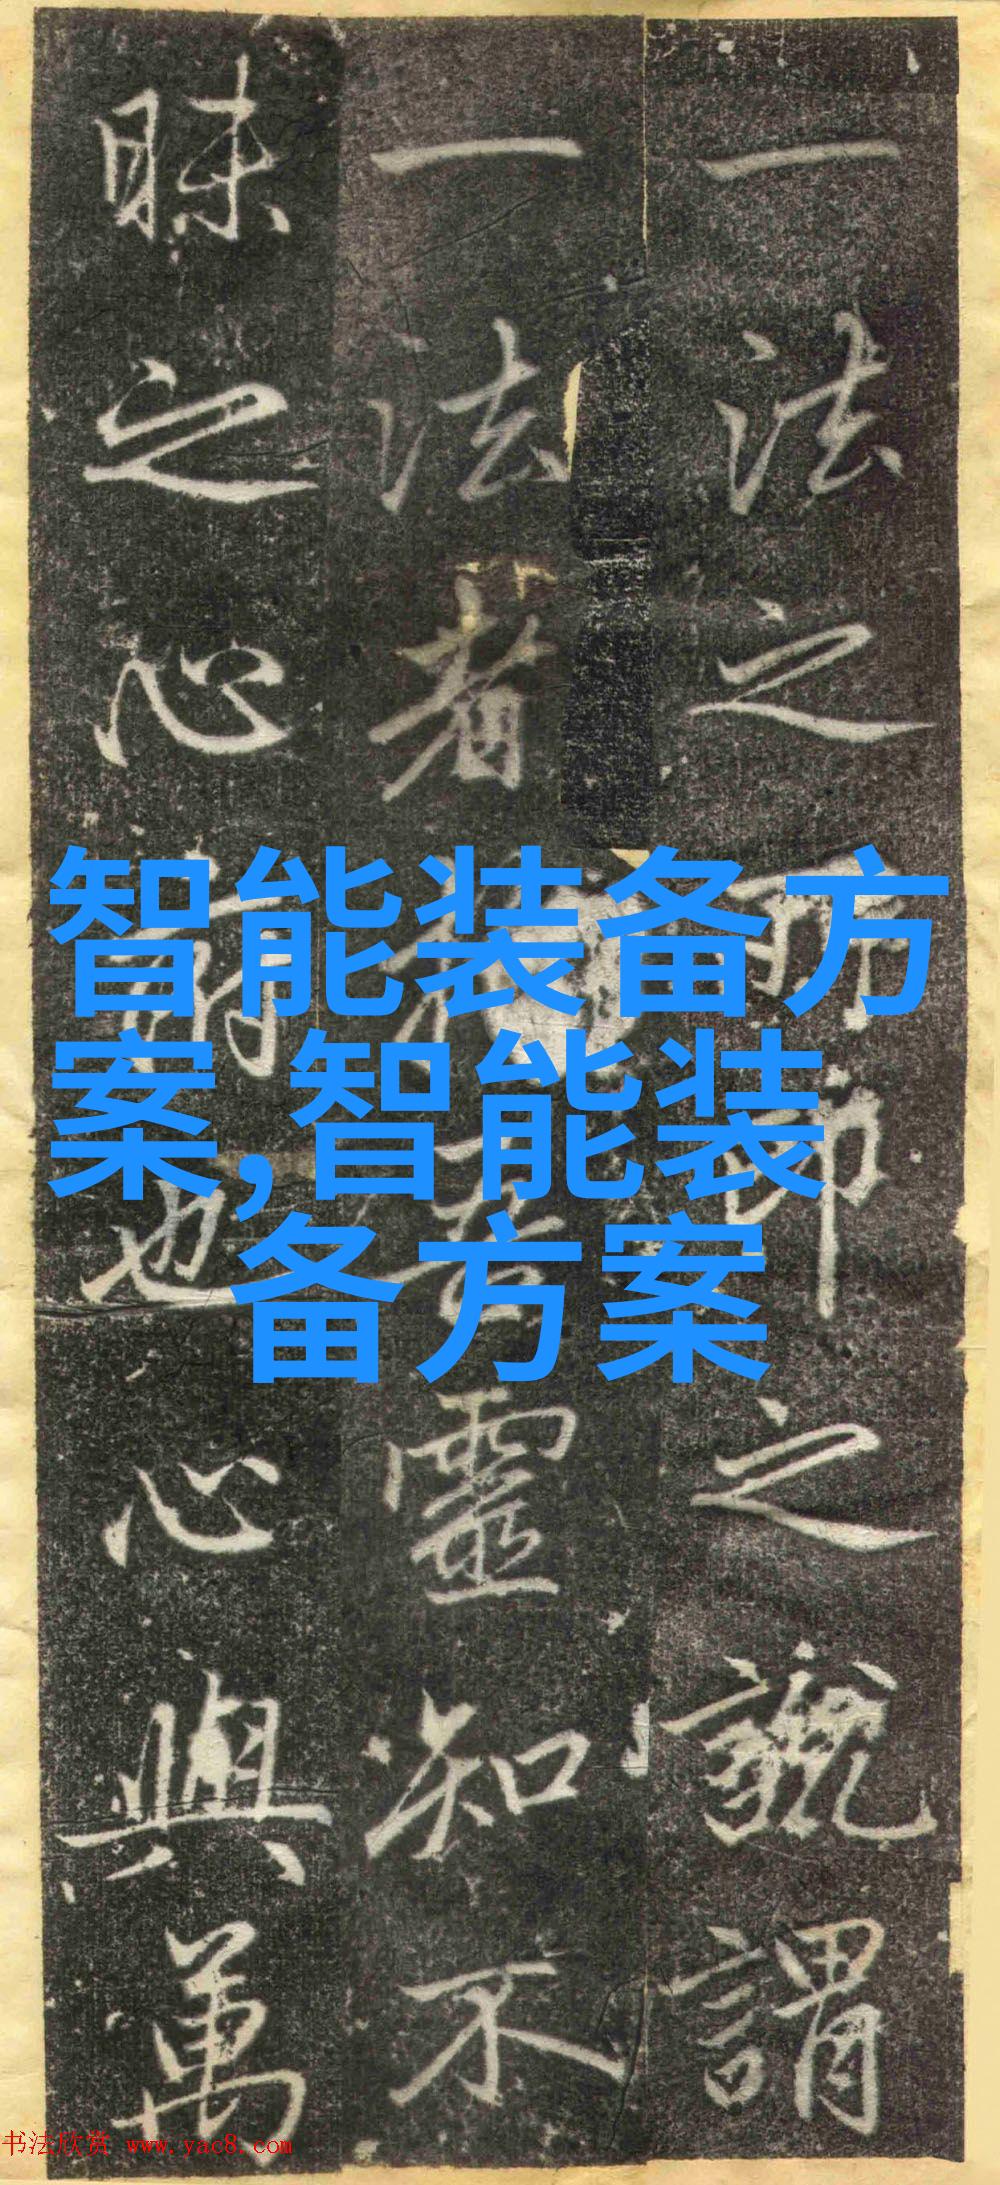 一法之之謂
一法者靈知不
昧之心也心與萬
智能装备方
案,智能装
备方案
书法欣赏 www.yac8.com